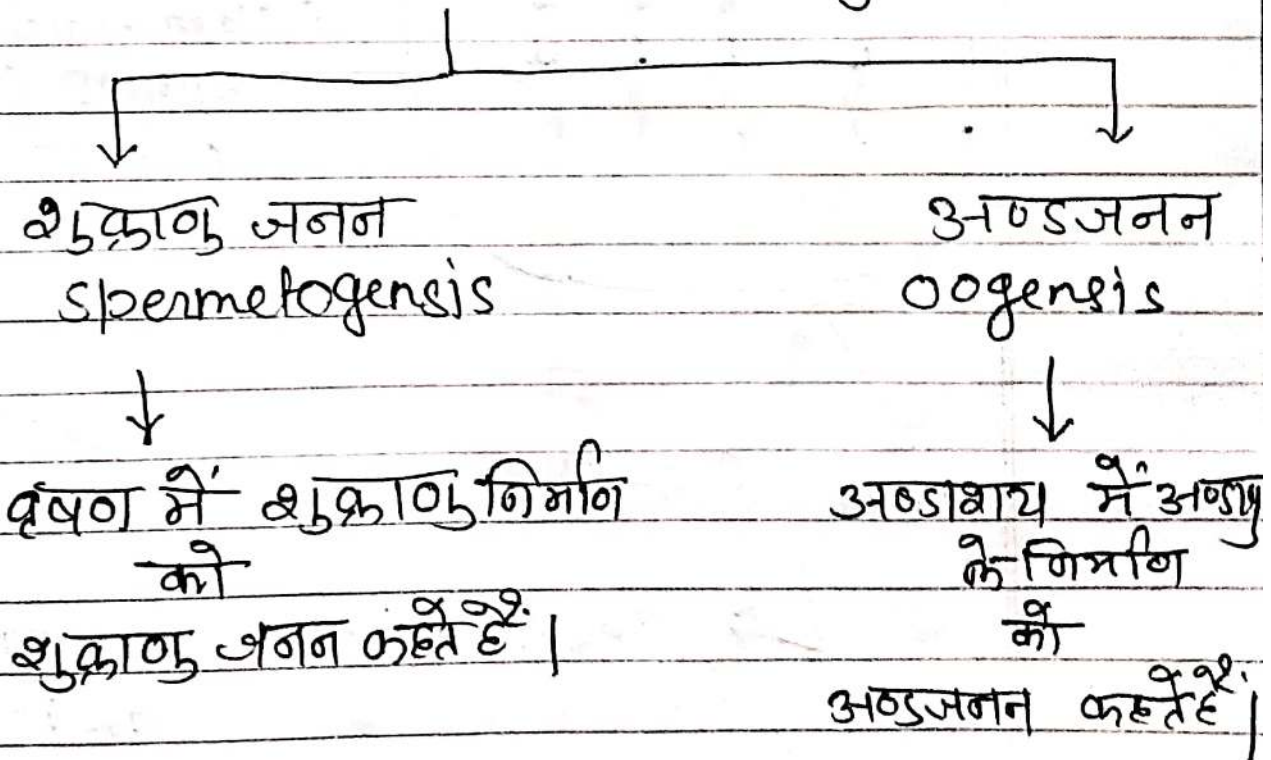 शुक्राणु जनन
spermetogensis
वृषण में शुक्राणु निर्माण
को
शुक्राणु जनन कहते हैं।
अण्डजनन
oogensis
अण्डाशय में अण्डाणु
के निर्माण
को
अण्डजनन कहते हैं।